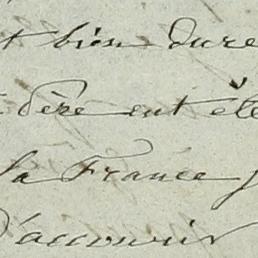 t bien dure
père eut été
la France
d'accourir